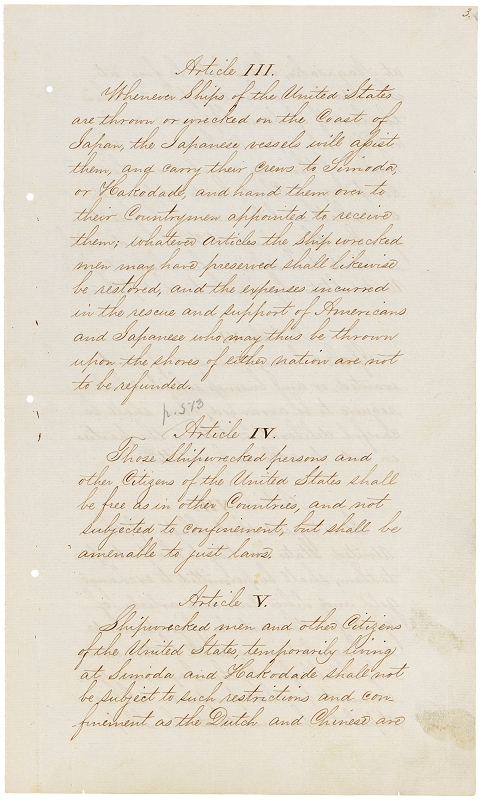 3.
Article III.
Whenever Ships of the United States
are thrown or wrecked on the Coast of
Japan, the Japanese vessels will assist
them, and carry their crews to Simoda,
or Hakodade, and hand them over to
their Countrymen appointed to receive
them; whatever articles the shipwrecked
men may have preserved shall likewise
be restored, and the expenses incurred
in the rescue and support of Americans
and Japanese who may thus be thrown
upon the shores of either nation are not
to be refunded.
p. 573
Article IV.
Those Shipwrecked persons and
other Citizens of the United States shall
be free as in other Countries, and not
subjected to confinement, but shall be
amenable to just laws.
Article V.
Shipwrecked men and other Citizens
of the United States, temporarily living
at Simoda and Hakodade shall not
be subject to such restrictions and con-
finement as the Dutch and Chinese are